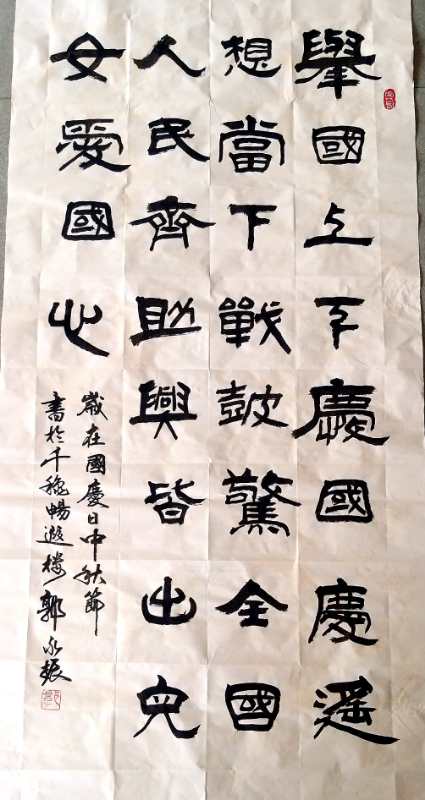 舉國上下慶國慶遙
想當下戰皷驚全國
人民齊助興皆出兒
女愛國心
歲在國慶日中秋節
書於千穐暢遊樓郭永振